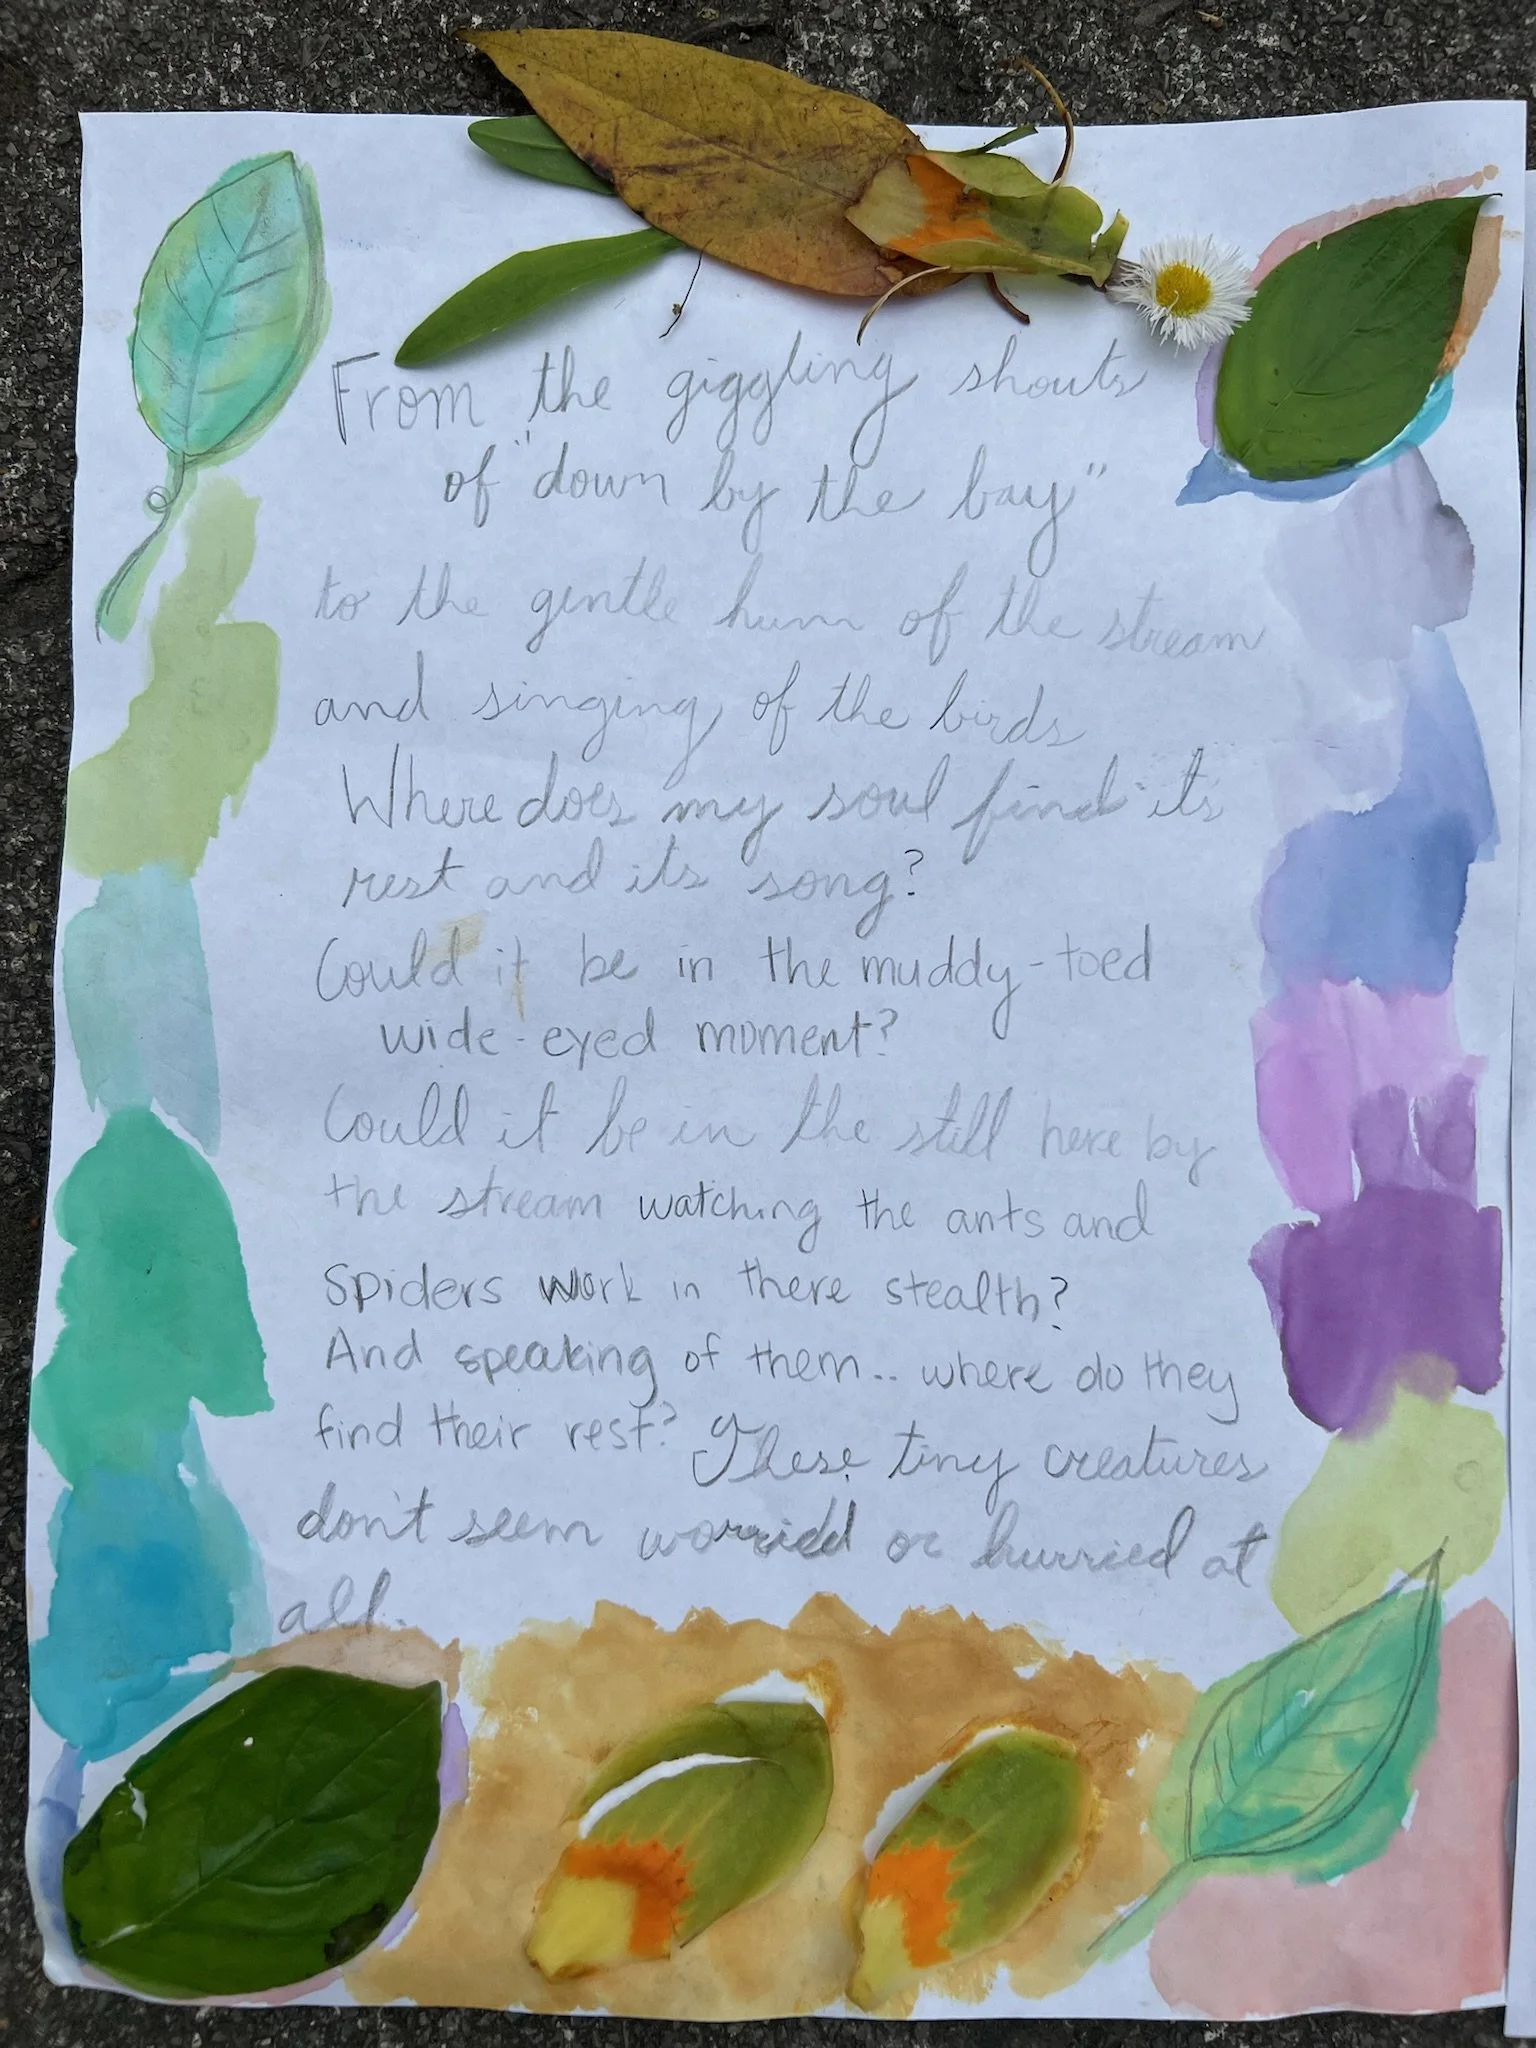 From the giggling shouts
of "down by the bay"
to the gentle hum of the stream
and singing of the birds
Where does my soul find its
rest and its song?
Could it be in the muddy-toed
wide-eyed moment?
Could it be in the still here by
the stream watching the ants and
Spiders work in there stealth?
And speaking of them.. where do they
find their rest? These tiny creatures
don't seem worried or hurried at
all.